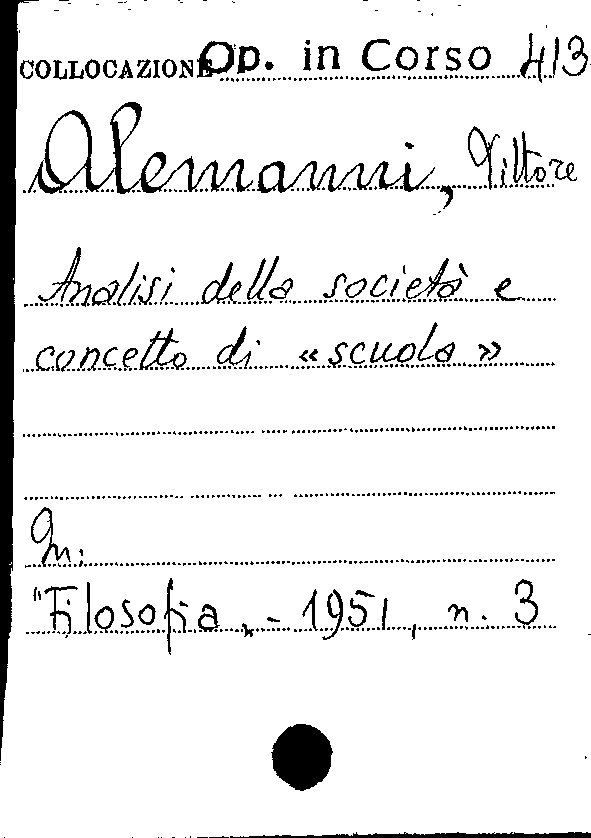 COLLOCAZIONE Op. in Corso 413
Alemanni, Vittore
Analisi della società e
concetto di «scuola»
In:
"Filosofia„ - 1951, n. 3